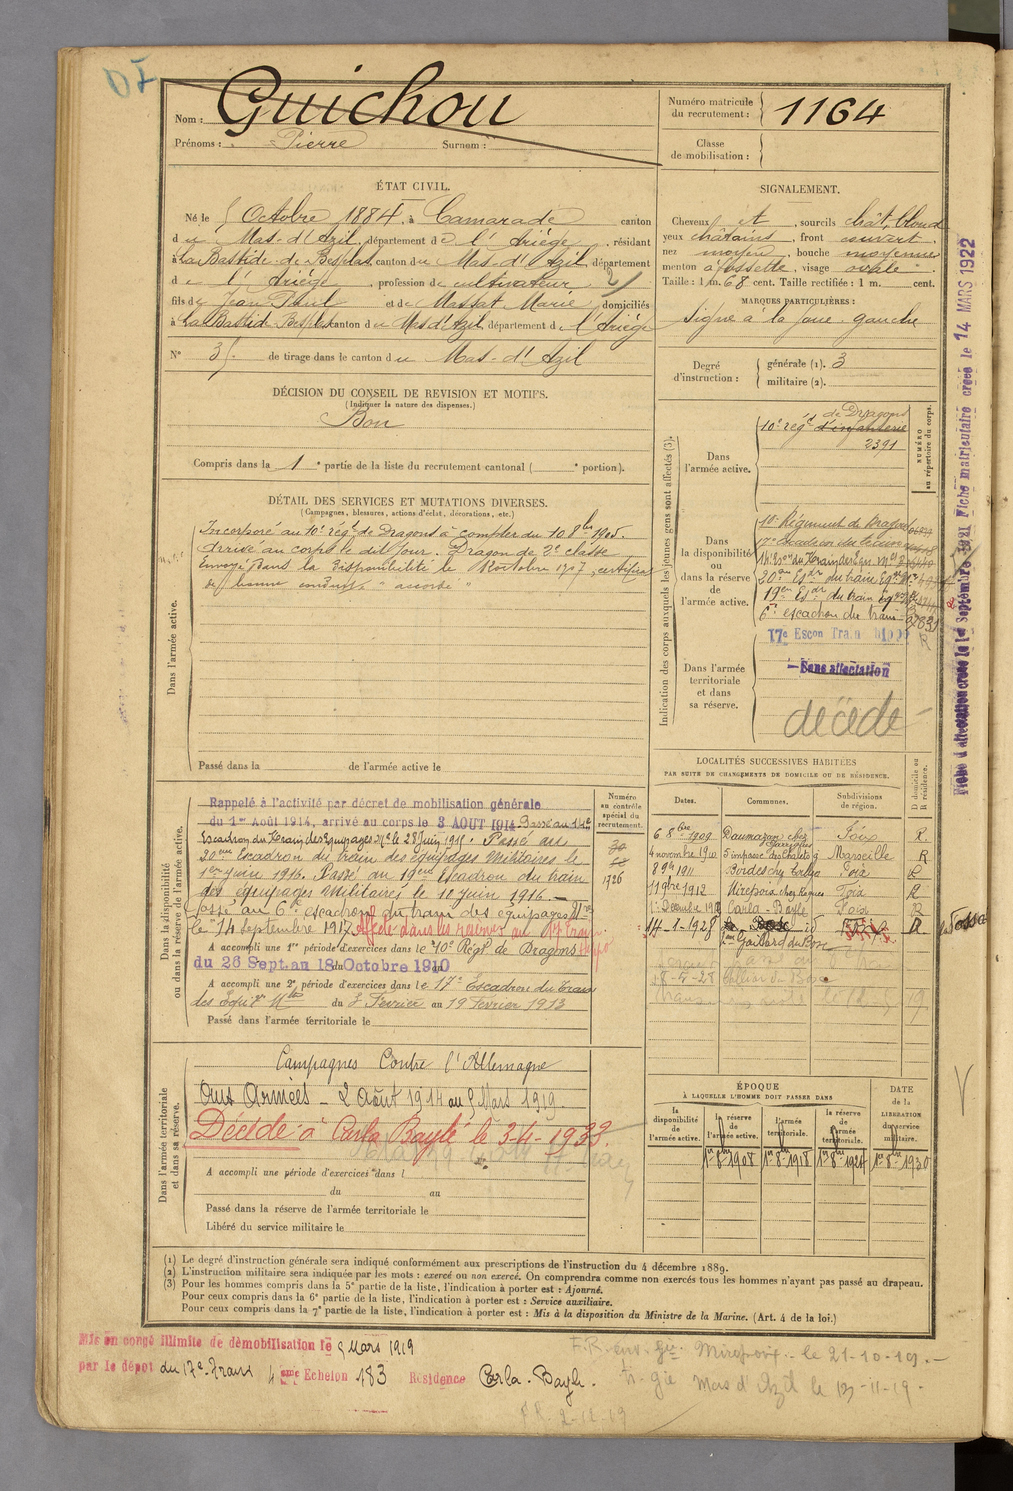 Nom : Guichou
Prénoms : Pierre Surnom :
Numéro matricule du recrutement : 1164
Classe de mobilisation :
ÉTAT CIVIL.
Né le 5 Octobre 1884, à Camarade canton
du Mas-d'Azil, département de l'Ariège, résidant
à La Bastide-de-Besplas, canton du Mas-d'Azil, département
de l'Ariège, profession de cultivateur
fils de Jean Paul et de Massat Marie domiciliés
à La Bastide-Besplas canton du Mas d'Azil, département de l'Ariège
N° 35 de tirage dans le canton du Mas-d'Azil
SIGNALEMENT.
Cheveux et , sourcils chât. blond
yeux châtains, front couvert.
nez moyen, bouche moyenne
menton à fossette, visage ovale.
Taille : 1 m. 68 cent. Taille rectifiée : 1 m. cent.
MARQUES PARTICULIÈRES :
Signe à la joue gauche
Degré d'instruction : générale (1). 3
militaire (2).
DÉCISION DU CONSEIL DE REVISION ET MOTIFS.
(Indiquer la nature des dispenses.)
Bon
Compris dans la 1e partie de la liste du recrutement cantonal ( e portion).
DÉTAIL DES SERVICES ET MUTATIONS DIVERSES.
(Campagnes, blessures, actions d'éclat, décorations, etc.)
Dans l'armée active.
Incorporé au 10e régt de Dragons à compter du 10 8bre 1905.
Arrivé au corps le dit jour. Dragon de 2e classe
Envoyé dans la disponibilité le octobre 1907, certificat
de bonne conduite "accordé"
Passé dans la de l'armée active le
Indication des corps auxquels les jeunes gens sont affectés (3).
NUMÉRO au répertoire du corps.
Dans l'armée active.
de Dragons
10e régt d'infanterie
2391
Dans la disponibilité ou dans la réserve de l'armée active.
10e Régiment de Dragons
17e Escadron du train
20em Esdr du train Eq.
19em Esdr du train
6e escadron du train
17e Escon Train
Dans l'armée territoriale et dans sa réserve.
Sans affectation
décédé
Dans la disponibilité ou dans la réserve de l'armée active.
Numéro au contrôle spécial du recrutement.
1926
Rappelé à l'activité par décret de mobilisation générale
du 1er Août 1914, arrivé au corps le 3 AOUT 1914 Passé au 14e
Escadron du Train des Equipages Mre le 28 Juin 1915. Passé au
20em Escadron du train des équipages Militaires le
1er juin 1916. Passé au 19em Escadron du train
des équipages Militaires le 12 juin 1916.
Passé au 6e escadron du train des equipages
le 14 septembre 1917 Affecté dans les réserves au 17e Train
A accompli une 1re période d'exercices dans le 10e Régt de Dragons
du 26 Sept. au 18 Octobre 1910
A accompli une 2e période d'exercices dans le 17e Escadron du train
des Equip Mres du 3 Février au 19 Février 1913
Passé dans l'armée territoriale le
LOCALITÉS SUCCESSIVES HABITÉES
PAR SUITE DE CHANGEMENTS DE DOMICILE OU DE RÉSIDENCE.
D domicile ou R résidence.
Dates. Communes. Subdivisions de région.
6 8bre 1909 Daumazan chez Foix R
4 novembre 1910 5 impasse des Chalets Marseille R
8 9bre 1911 Foix
11 9bre 1912 Mirepoix Foix R
1er Décembre 1912 Carla-Bayle Foix R
14-1-1928
Gaillard du Bosc
Dans l'armée territoriale et dans sa réserve.
Campagnes Contre l'Allemagne
Aux Armées - 2 Août 1914 au 5 Mars 1919.
Décédé à Carla Bayle le 3-4-1933.
A accompli une période d'exercices dans l
du au
Passé dans la réserve de l'armée territoriale le
Libéré du service militaire le
ÉPOQUE
À LAQUELLE L'HOMME DOIT PASSER DANS
DATE de la LIBERATION du service militaire.
la disponibilité de l'armée active.
la réserve de l'armée active.
l'armée territoriale.
la réserve de l'armée territoriale.
1er 8bre 1908 1er 8bre 1918 1er 8bre 1924 1er 8bre 1930
(1) Le degré d'instruction générale sera indiqué conformément aux prescriptions de l'instruction du 4 décembre 1889.
(2) L'instruction militaire sera indiquée par les mots : exercé ou non exercé. On comprendra comme non exercés tous les hommes n'ayant pas passé au drapeau.
(3) Pour les hommes compris dans la 5e partie de la liste, l'indication à porter est : Ajourné.
Pour ceux compris dans la 6e partie de la liste, l'indication à porter est : Service auxiliaire.
Pour ceux compris dans la 7e partie de la liste, l'indication à porter est : Mis à la disposition du Ministre de la Marine. (Art. 4 de la loi.)
Mis en congé illimité de démobilisation le 5 Mars 1919
par le dépôt du 17e Train 4eme Echelon 183 Résidence Carla-Bayle.
Mirepoix le 21-10-19.
Mas d'Azil le 12-11-19.
2-12-19
Fiche d'affectation créée le 1er Septembre 1921 Fiche matriculaire créée le 14 MARS 1922